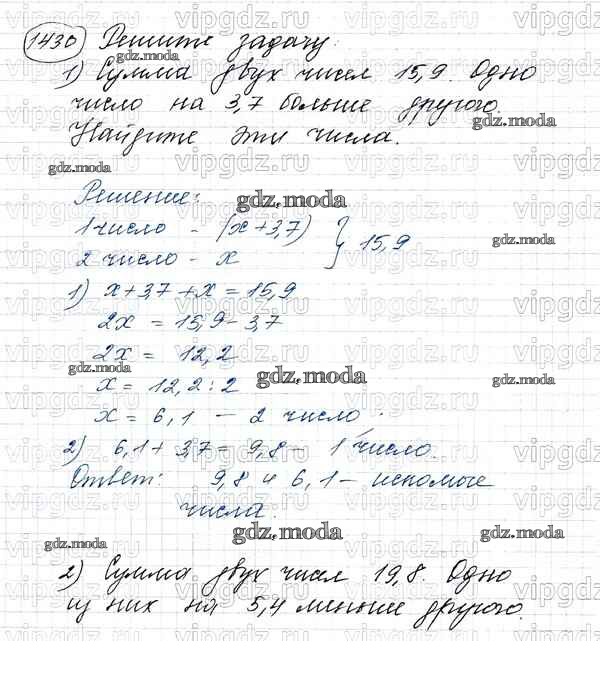 1430 Решите задачу:
1) Сумма двух чисел 15,9. Одно
число на 3,7 больше другого.
Найдите эти числа.
Решение:
1 число - (x+3,7) } 15,9
2 число - x
1) x+3,7+x = 15,9
2x = 15,9-3,7
2x = 12,2
x = 12,2:2
x = 6,1 - 2 число.
2) 6,1+3,7= 9,8 - 1 число.
Ответ: 9,8 и 6,1 - искомые
числа.
2) Сумма двух чисел 19,8. Одно
из них на 5,4 меньше другого.
vipgdz.ru
gdz.moda